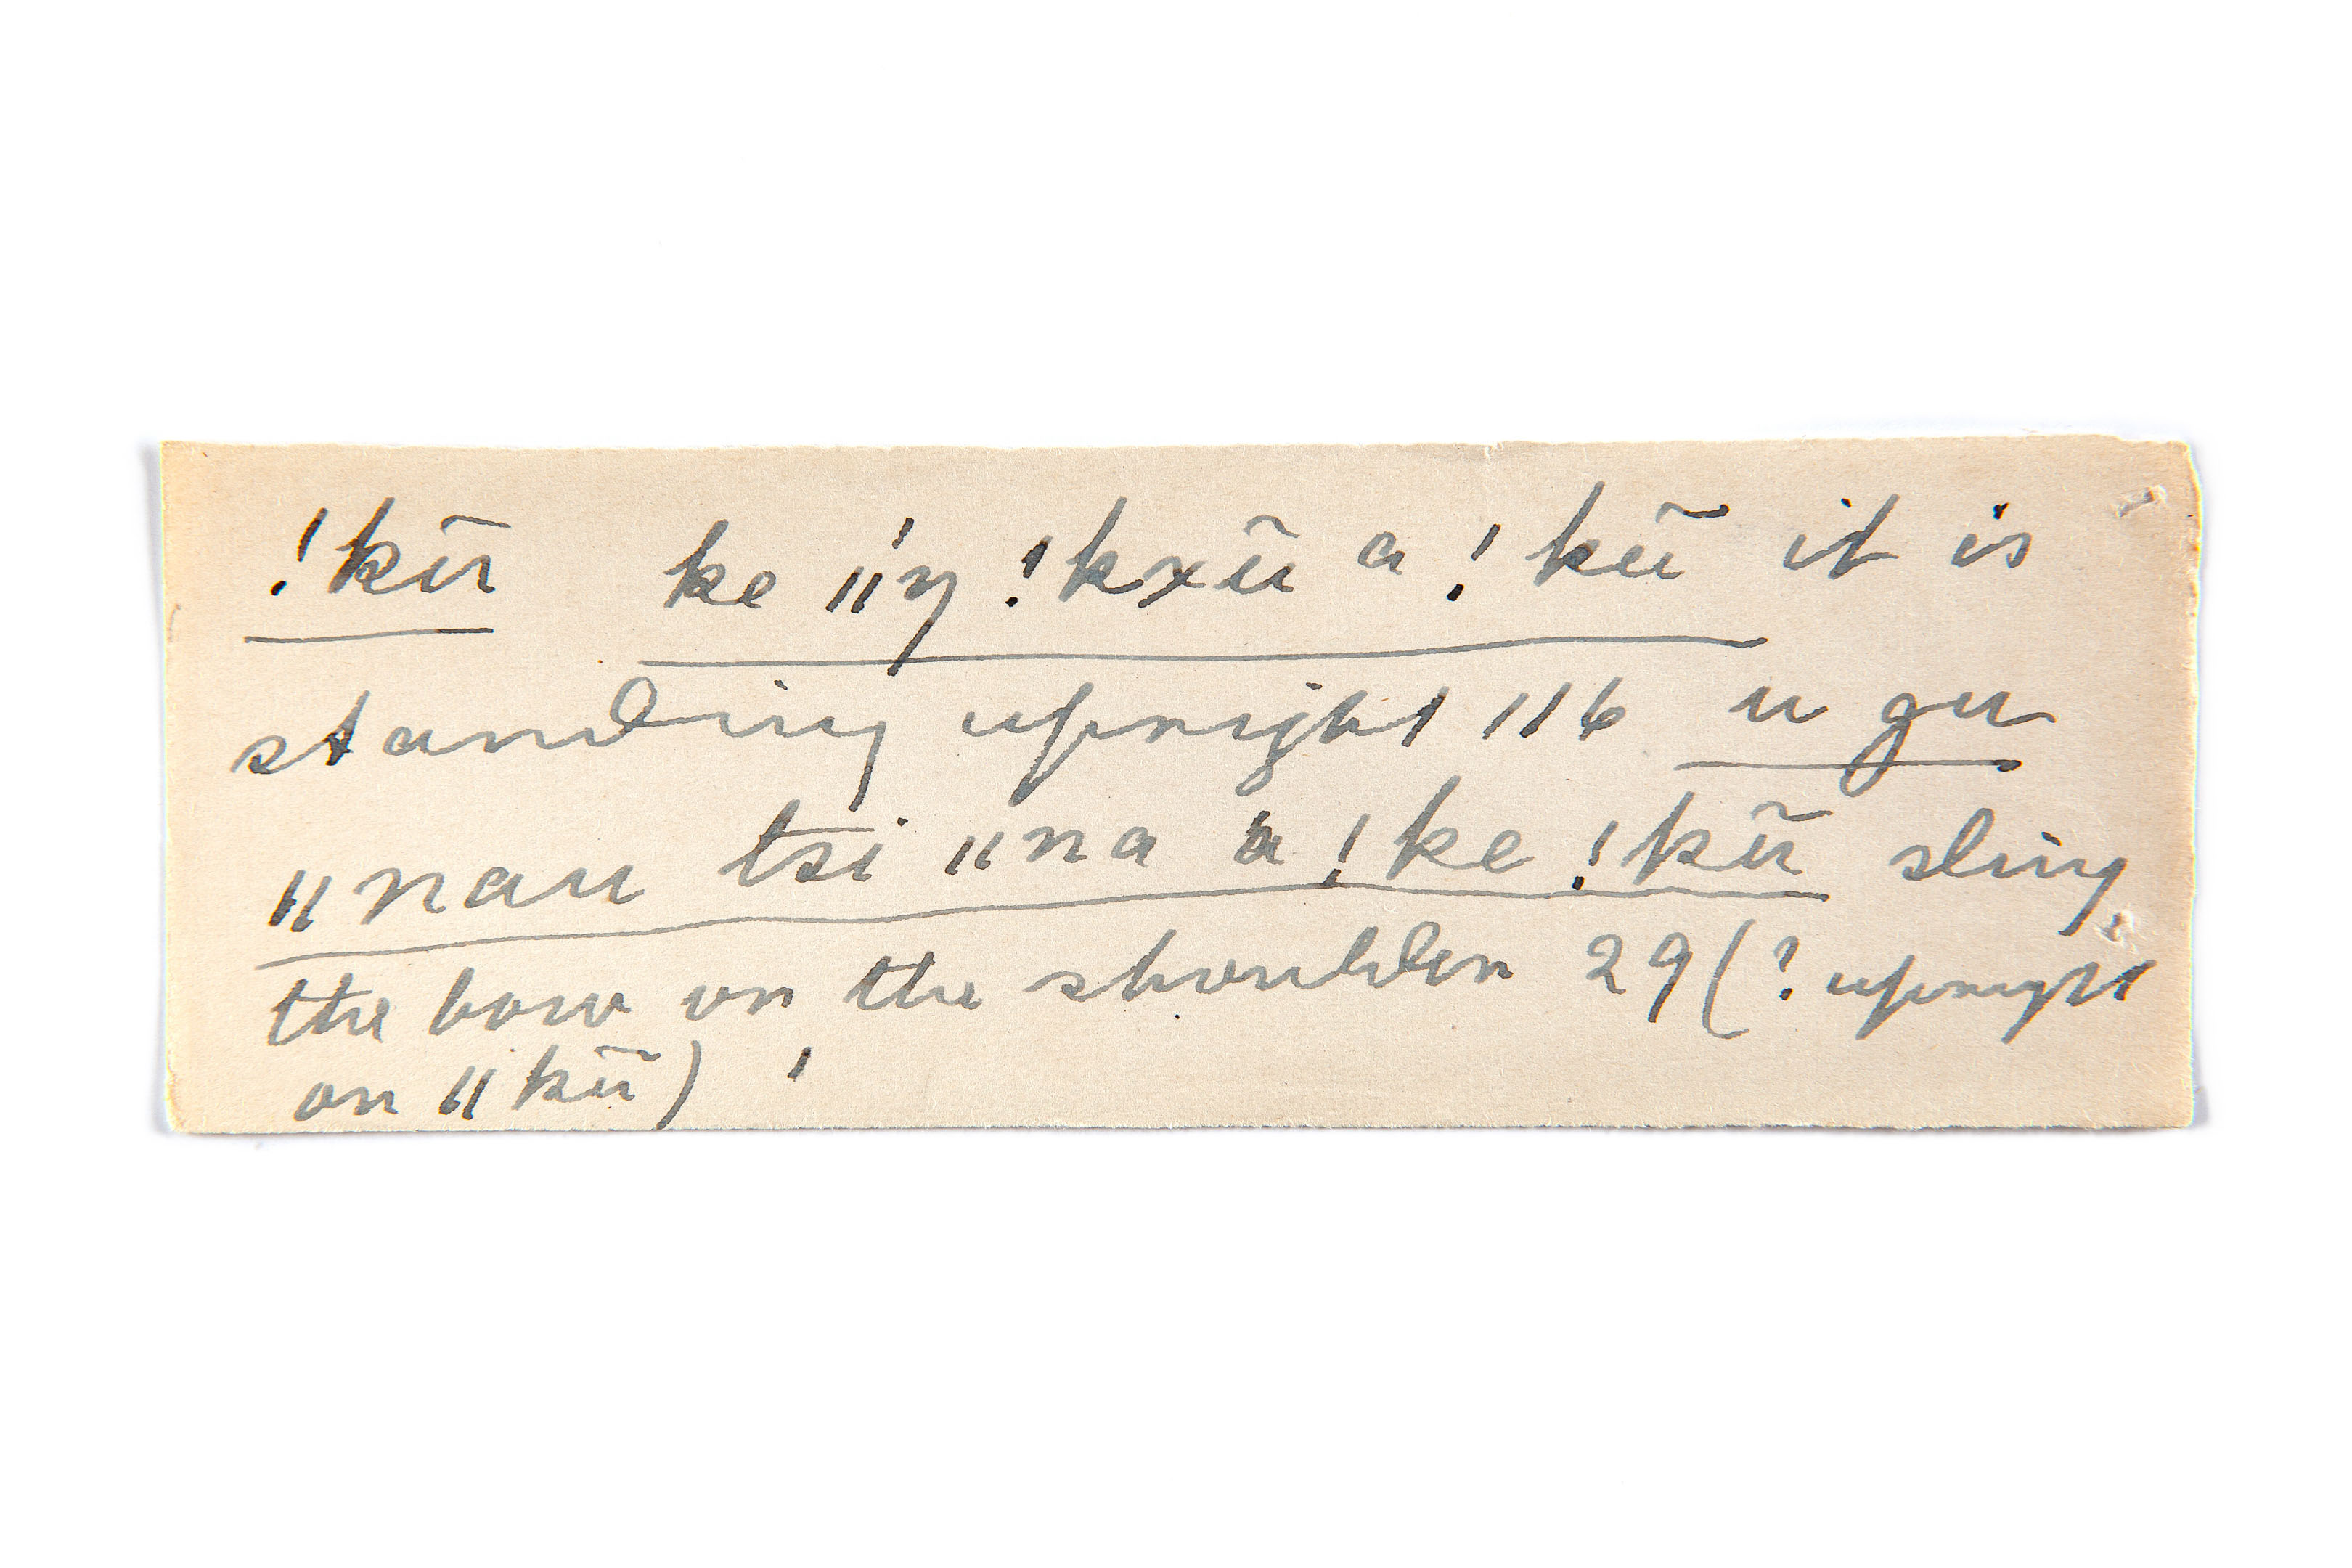 !kū ke ǁ'ŋ !kxū a !kū it is
standing upright 116 u gu
ǁnau tsi ǁna a !ke !kū sling
the bow on the shoulder 29 (? upright
on ǁkū) '